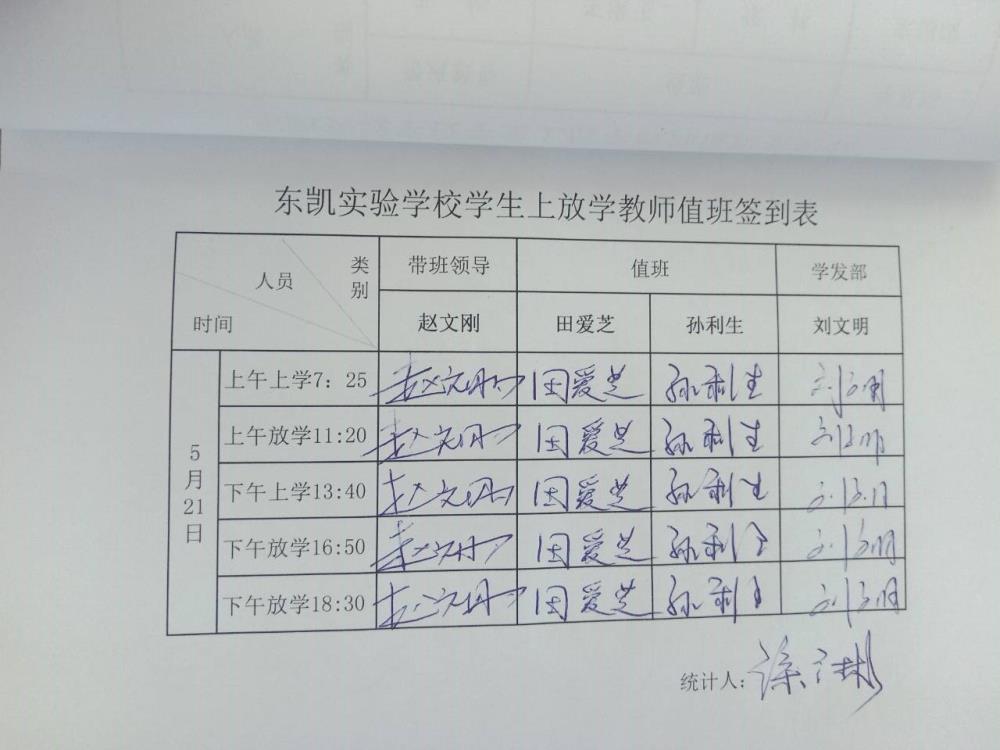 东凯实验学校学生上放学教师值班签到表
类别 人员 时间 带班领导 值班 学发部
赵文刚 田爱芝 孙利生 刘文明
5月21日
上午上学7：25 赵文刚 田爱芝 孙利生 刘文明
上午放学11:20 赵文刚 田爱芝 孙利生 刘文明
下午上学13:40 赵文刚 田爱芝 孙利生 刘文明
下午放学16:50 赵文刚 田爱芝 孙利生 刘文明
下午放学18:30 赵文刚 田爱芝 孙利生 刘文明
统计人：徐